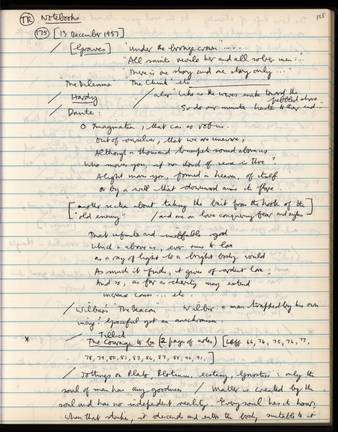 TR Notebooks
155
(175) [13 December 1957]
/ [Graves] "Under the bronze crown" ....
All saints revile her and all sober men ..
There is one story and one story only ...
The Dilemma The Climb etc
/ Hardy / also Like as the waves make toward the pebbled shore
/ Dante: So do our minutes haste to their end..
O Imagination, that can so rob us
Out of ourselves, that we are unaware,
Although a thousand trumpets sound about us
Who moves you, if no a of sense is there?
A light moves you, formed in heaven, of itself
Or by a will that downward aims its
[another section about taking the bait from the hook of the
"old enemy" / and one on love conquering fear and
That infinite and ineffable good
Which is above us, ever runs to love
As a ray of light to a bright body would
As much it finds, it gives of ardent love,
And so, as far as charity may extend
increase ... etc
/ Wilbur's The Beacon / Wilbur: a man trapped by his own
way: Graceful yet an
/ Tillich
x The Courage to Be (2 pages of notes) 66, 74, 75, 76, 77,
78, 79, 80, 81, 83, 84, 87, 88, 90, 91,]
/ Jottings on Plato, Plotinus, : only the
soul of man has any goodness / Matter is created by the
soul and has no independent reality. Every soul has its hour;
when that strikes, it descends and enters the body suitable to it